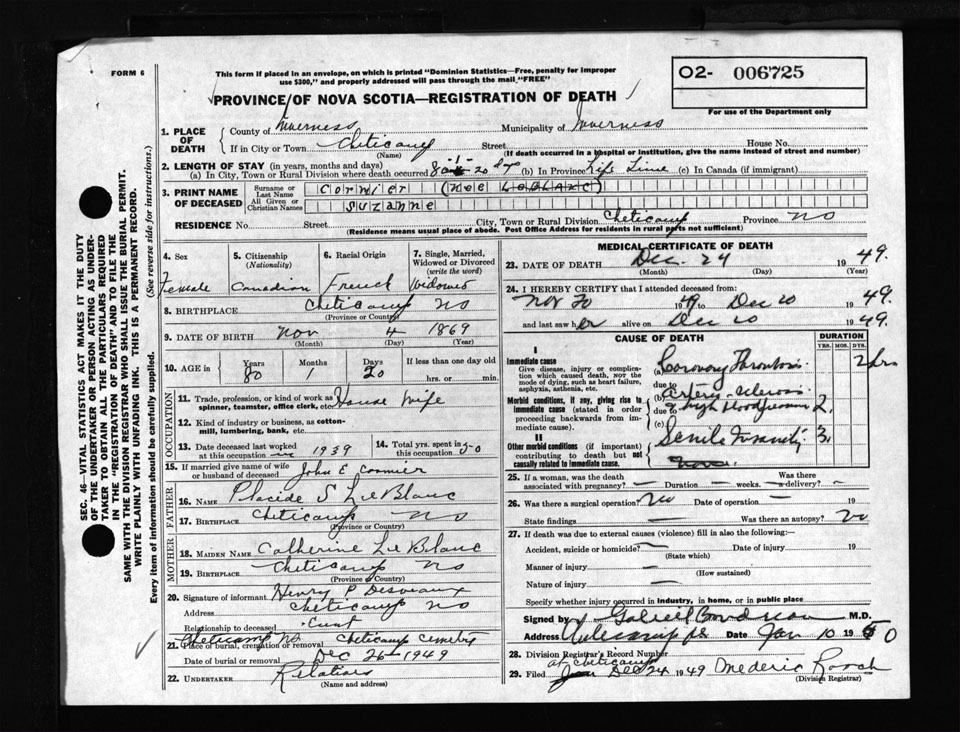 FORM 6
This form if placed in an envelope, on which is printed "Dominion Statistics—Free, penalty for improper
use $300," and properly addressed will pass through the mail "FREE"
O2- 006725
For use of the Department only
PROVINCE OF NOVA SCOTIA—REGISTRATION OF DEATH
1. PLACE OF DEATH
County of Inverness Municipality of Inverness
If in City or Town Cheticamp Street House No.
(Name) (If death occurred in a hospital or institution, give the name instead of street and number)
2. LENGTH OF STAY (in years, months and days)
(a) In City, Town or Rural Division where death occurred 80 -1- 20 days (b) In Province Life Time (c) In Canada (if immigrant)
3. PRINT NAME OF DECEASED
Surname or Last Name Cormier (nee LeBlanc)
All Given or Christian Names Suzanne
RESIDENCE No. Street City, Town or Rural Division Cheticamp Province NS
(Residence means usual place of abode. Post Office Address for residents in rural parts not sufficient)
4. Sex Female
5. Citizenship (Nationality) Canadian
6. Racial Origin French
7. Single, Married, Widowed or Divorced (write the word) Widowed
8. BIRTHPLACE Cheticamp NS
(Province or Country)
9. DATE OF BIRTH Nov 4 1869
(Month) (Day) (Year)
10. AGE in Years 80 Months 1 Days 20 If less than one day old
hrs. or min.
OCCUPATION
11. Trade, profession, or kind of work as House Wife
spinner, teamster, office clerk, etc.
12. Kind of industry or business, as cotton-
mill, lumbering, bank, etc.
13. Date deceased last worked at this occupation 1939
14. Total yrs. spent in this occupation 50
15. If married give name of wife or husband of deceased John E Cormier
FATHER
16. NAME Placide S LeBlanc
17. BIRTHPLACE Cheticamp NS
(Province or Country)
MOTHER
18. MAIDEN NAME Catherine Le Blanc
19. BIRTHPLACE Cheticamp NS
(Province or Country)
20. Signature of informant Henry P Desveaux
Address Cheticamp NS
Relationship to deceased
21. Place of burial, cremation or removal Cheticamp NS Cheticamp Cemetery
Date of burial or removal Dec 26 - 1949
22. UNDERTAKER Relatives
(Name and address)
MEDICAL CERTIFICATE OF DEATH
23. DATE OF DEATH Dec. 24 1949.
(Month) (Day) (Year)
24. I HEREBY CERTIFY that I attended deceased from:
Nov 1949 to Dec 20 1949.
and last saw her alive on Dec 20 1949.
CAUSE OF DEATH
DURATION
YRS. MOS. DYS.
I
Immediate cause (a) Coronary Thrombosis 2 hrs
Give disease, injury or complica-
tion which caused death, not the
mode of dying, such as heart failure,
asphyxia, asthenia, etc.
due to
Morbid conditions, if any, giving rise to (b) artery-sclerosis
immediate cause (stated in order due to & high blood pressure 2.
proceeding backwards from im-
mediate cause). (c) Senile Insanity 3.
II
Other morbid conditions (if important)
contributing to death but not
causally related to immediate cause.
25. If a woman, was the death Was there
associated with pregnancy? — Duration — weeks. a delivery? —
26. Was there a surgical operation? No Date of operation — 19
State findings — Was there an autopsy? No
27. If death was due to external causes (violence) fill in also the following:—
Accident, suicide or homicide? — Date of injury 19
(State which)
Manner of injury —
(How sustained)
Nature of injury —
Specify whether injury occurred in industry, in home, or in public place
Signed by Gabriel Boudreau M.D.
Address Cheticamp NS Date Jan 10 1950
28. Division Registrar's Record Number
at Cheticamp
29. Filed Dec 24 1949 Mederic Roach
(Division Registrar)
SEC. 46—VITAL STATISTICS ACT MAKES IT THE DUTY
OF THE UNDERTAKER OR PERSON ACTING AS UNDER-
TAKER TO OBTAIN ALL THE PARTICULARS REQUIRED
IN THE "REGISTRATION OF DEATH" AND TO FILE THE
SAME WITH THE DIVISION REGISTRAR WHO SHALL ISSUE THE BURIAL PERMIT.
WRITE PLAINLY WITH UNFADING INK. THIS IS A PERMANENT RECORD.
Every item of information should be carefully supplied. (See reverse side for instructions.)